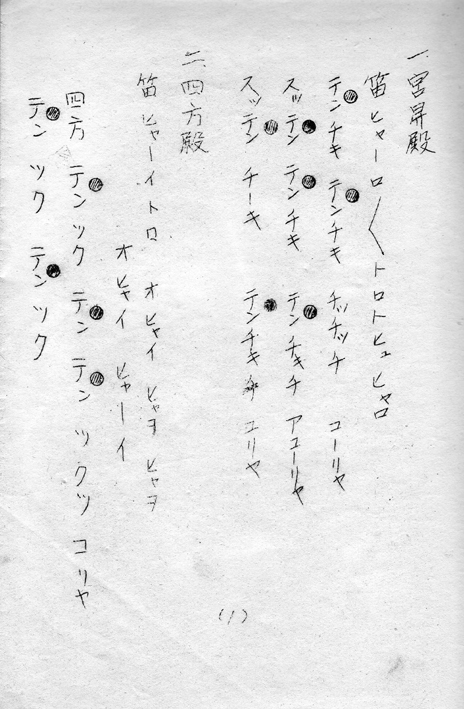 一、宮昇殿
笛 ヒャーロ〱トロトヒュ ヒャロ
テンチキ テンチキ チッチッチ コーリャ
スッテン テンチキ テンチキチ アコーリャ
スッテン チーキ テンチキ コリャ
二、四方殿
笛 ヒャーイトロ オヒャイ ヒャヲ ヒャヲ
オヒャイ ヒャーイ
四方 テンツク テン テン ツクツ コリャ
テンツク テンツク
(1)